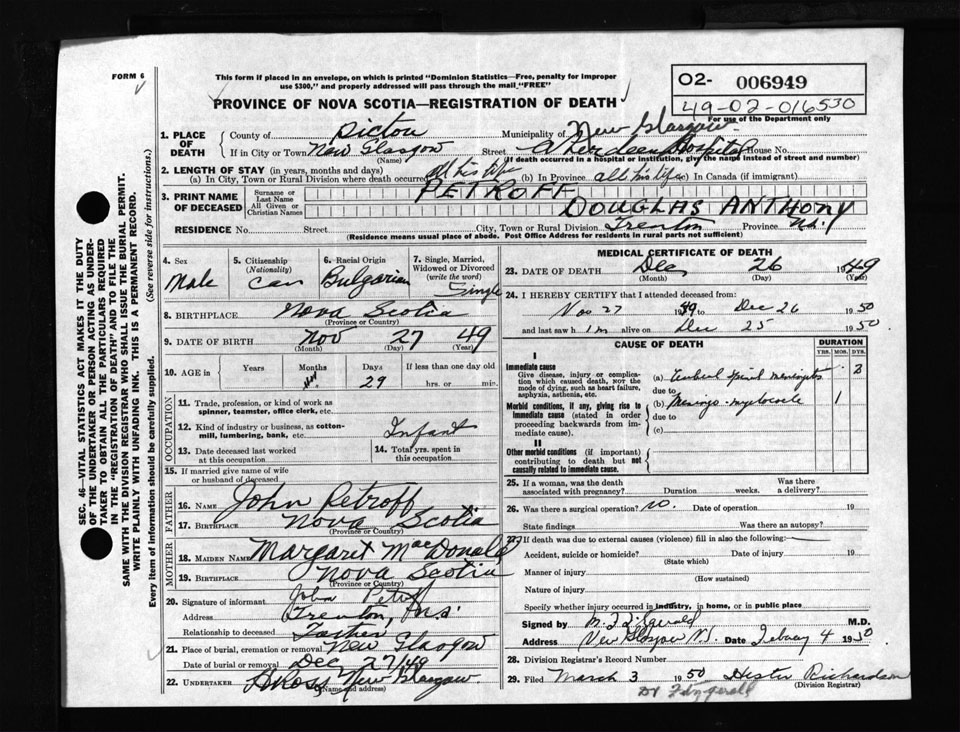 FORM 6
This form if placed in an envelope, on which is printed "Dominion Statistics—Free, penalty for improper
use $300," and properly addressed will pass through the mail "FREE"
O2- 006949
49-02-016530
For use of the Department only
PROVINCE OF NOVA SCOTIA—REGISTRATION OF DEATH
SEC. 46—VITAL STATISTICS ACT MAKES IT THE DUTY
OF THE UNDERTAKER OR PERSON ACTING AS UNDER-
TAKER TO OBTAIN ALL THE PARTICULARS REQUIRED
IN THE "REGISTRATION OF DEATH" AND TO FILE THE
SAME WITH THE DIVISION REGISTRAR WHO SHALL ISSUE THE BURIAL PERMIT.
WRITE PLAINLY WITH UNFADING INK. THIS IS A PERMANENT RECORD.
Every item of information should be carefully supplied. (See reverse side for instructions.)
1. PLACE OF DEATH
County of Pictou Municipality of New Glasgow
If in City or Town New Glasgow Street Aberdeen Hospital House No.
(Name) (If death occurred in a hospital or institution, give the name instead of street and number)
2. LENGTH OF STAY (in years, months and days)
(a) In City, Town or Rural Division where death occurred all his life (b) In Province all his life (c) In Canada (if immigrant)
3. PRINT NAME OF DECEASED
Surname or Last Name PETROFF
All Given or Christian Names DOUGLAS ANTHONY
RESIDENCE No. Street City, Town or Rural Division Trenton Province N.S.
(Residence means usual place of abode. Post Office Address for residents in rural parts not sufficient)
4. Sex Male
5. Citizenship (Nationality) Can
6. Racial Origin Bulgarian
7. Single, Married, Widowed or Divorced (write the word) Single
8. BIRTHPLACE Nova Scotia
(Province or Country)
9. DATE OF BIRTH Nov 27 49
(Month) (Day) (Year)
10. AGE in Years Months Days 29 If less than one day old hrs. or min.
OCCUPATION
11. Trade, profession or kind of work as spinner, teamster, office clerk, etc.
12. Kind of industry or business, as cotton-mill, lumbering, bank, etc. Infant
13. Date deceased last worked at this occupation
14. Total yrs. spent in this occupation
15. If married give name of wife or husband of deceased
FATHER
16. NAME John Petroff
17. BIRTHPLACE Nova Scotia
(Province or Country)
MOTHER
18. MAIDEN NAME Margaret MacDonald
19. BIRTHPLACE Nova Scotia
(Province or Country)
20. Signature of informant John Petroff
Address Trenton, N.S.
Relationship to deceased Father
21. Place of burial, cremation or removal New Glasgow
Date of burial or removal Dec 27/49
22. UNDERTAKER Ross New Glasgow
(Name and address)
MEDICAL CERTIFICATE OF DEATH
23. DATE OF DEATH Dec 26 1949
(Month) (Day) (Year)
24. I HEREBY CERTIFY that I attended deceased from:
Nov 27 1949 to Dec 26 1950
and last saw him alive on Dec 25 1950
CAUSE OF DEATH
DURATION
YRS. MOS. DYS.
I
Immediate cause
Give disease, injury or complication which caused death, NOT the mode of dying, such as heart failure, asphyxia, asthenia, etc.
(a) spinal meningitis 3
due to
Morbid conditions, if any, giving rise to immediate cause (stated in order proceeding backwards from immediate cause).
(b) Meningo-myelocele 1
due to
(c)
II
Other morbid conditions (if important) contributing to death but not causally related to immediate cause.
25. If a woman, was the death associated with pregnancy? Duration weeks. Was there a delivery?
26. Was there a surgical operation? no. Date of operation 19
State findings Was there an autopsy?
27. If death was due to external causes (violence) fill in also the following:
Accident, suicide or homicide? Date of injury 19
(State which)
Manner of injury
(How sustained)
Nature of injury
Specify whether injury occurred in industry, in home, or in public place
Signed by M.D.
Address New Glasgow N.S. Date February 4 1950
28. Division Registrar's Record Number
29. Filed March 3 1950 Hester Richardson
(Division Registrar)
Dr Fitzgerald